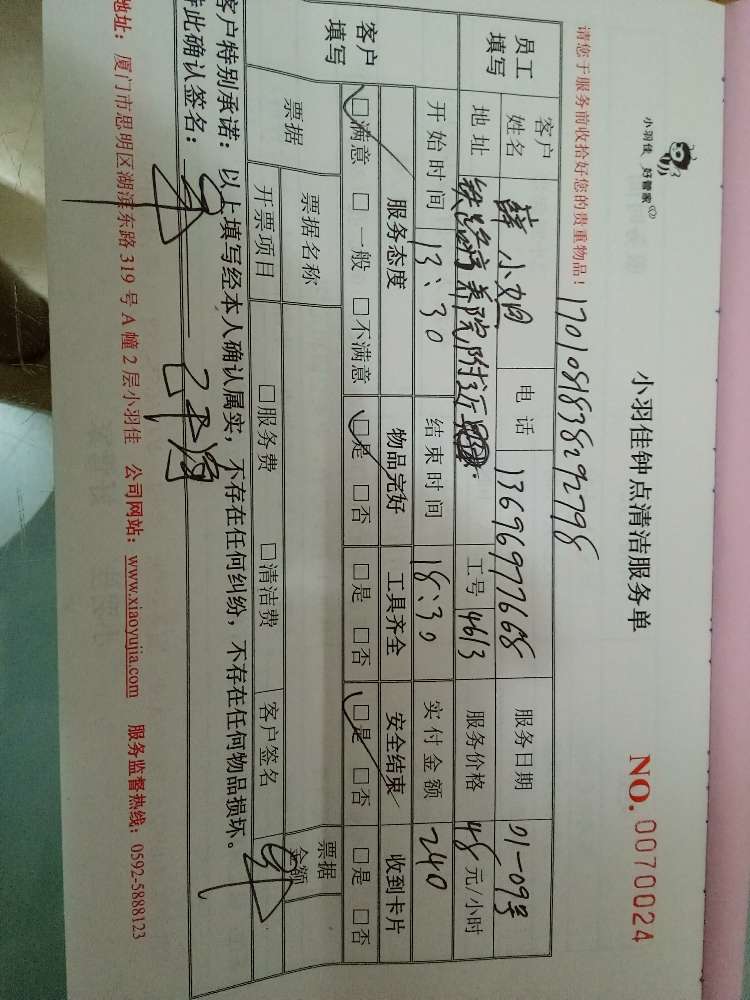 小羽佳 好管家
小羽佳钟点清洁服务单 NO.0070024
1701081838292798
请您于服务前收拾好您的贵重物品！
员工填写 客户姓名 薛小姐 电话 13696977668 服务日期 01-09号
地址 铁路疗养院附近 工号 4613 服务价格 48元/小时
开始时间 13:30 结束时间 18:30 实付金额 240
客户填写 服务态度 物品完好 工具齐全 安全结束 收到卡片
☑满意 □一般 □不满意 ☑是 □否 □是 □否 ☑是 □否 □是 □否
票据 票据名称 票据金额
开票项目 □服务费 □清洁费 客户签名
客户特别承诺：以上填写经本人确认属实，不存在任何纠纷，不存在任何物品损坏。
特此确认签名：
地址：厦门市思明区湖滨东路319号A幢2层小羽佳 公司网站：www.xiaoyujia.com 服务监督热线：0592-5888123